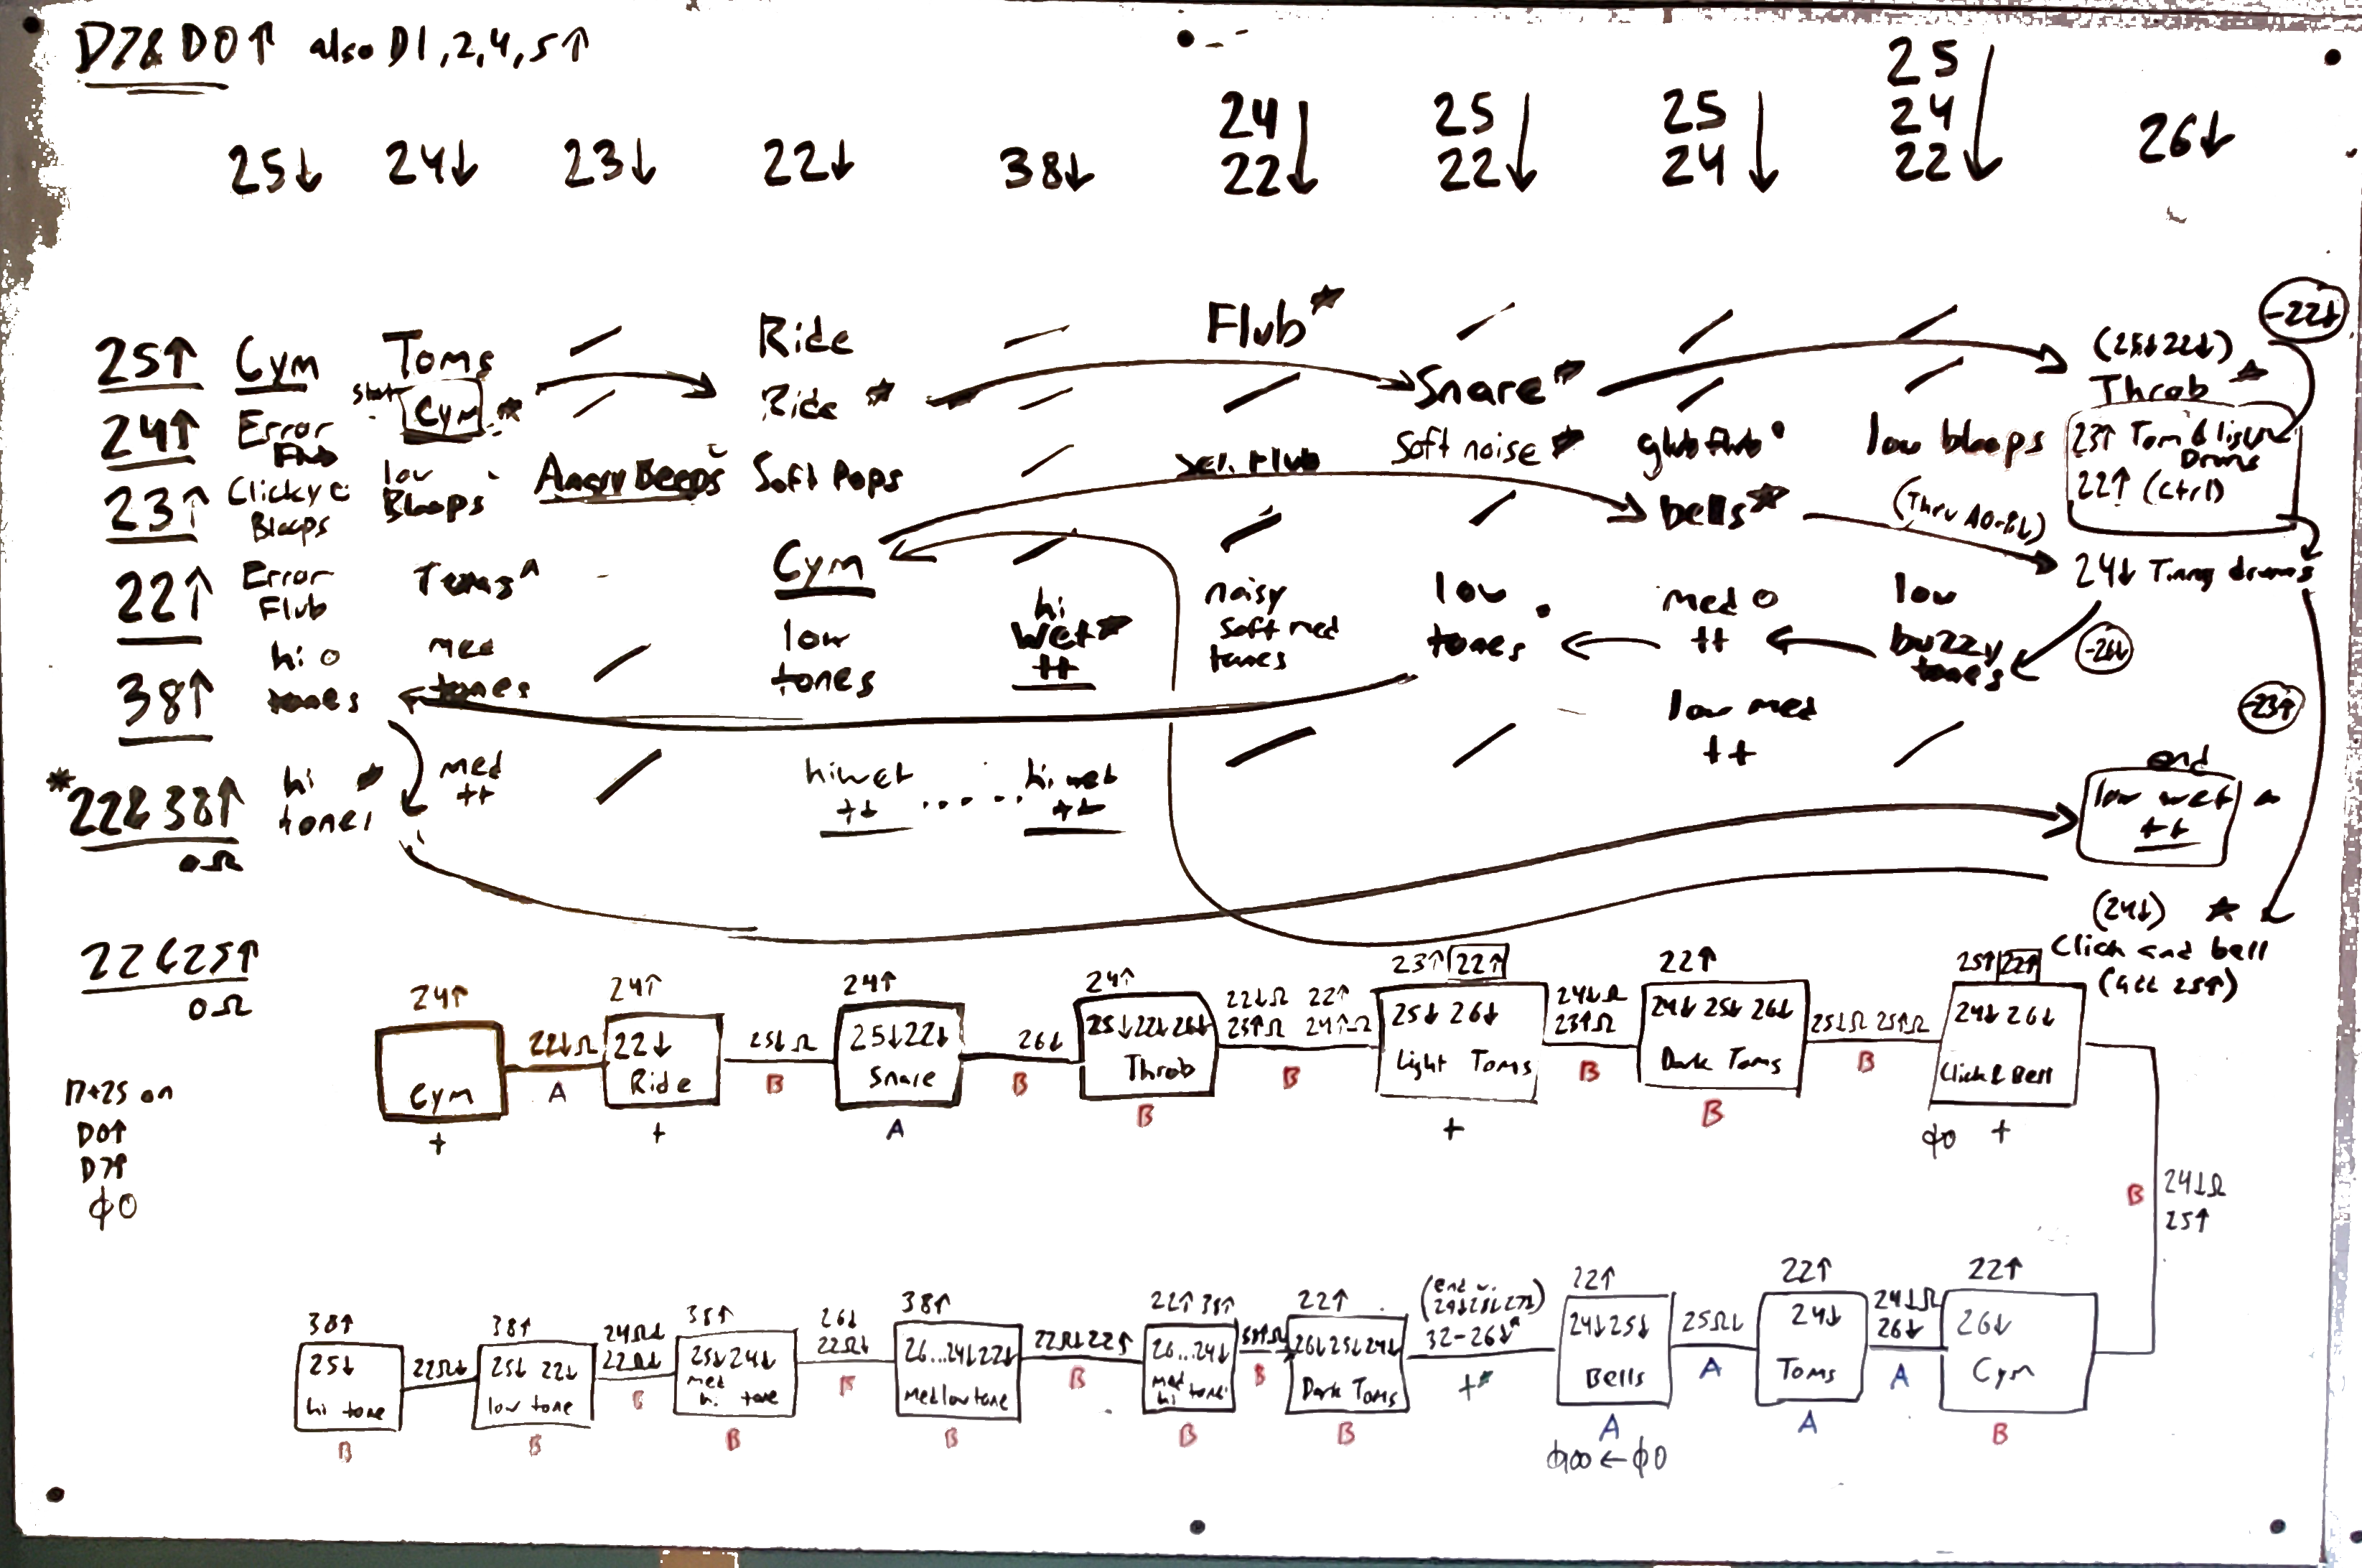 D7&D0↑ also D1,2,4,5↑
25↓ 24↓ 23↓ 22↓ 38↓ 24 22↓ 25 22↓ 25 24↓ 25 24 22↓ 26↓
25↑ Cym Toms / Ride / Flub★ / / / (25↓22↓) -22↓
Throb ★
24↑ Error Flub start Cym ★ / Ride ★ / / Snare★ / /
23↑ Tom & Drums
22↑ (ctrl)
23↑ Clicky Bloops low Bloops Angry Beeps Soft Pops / Flub Soft noise glub flub low bloops
22↑ Error Flub Toms^ - Cym / / / bells★ (Thru A0-) 24↓ drums
38↑ hi o tones med tones / low tones hi wet★ ++ noisy soft med tones low tones med o ++ low buzzy tones
-23↑
*22&38↑ hi tones med ++ / hi wet ++ ...... hi wet ++ / / low med ++ / end low wet ++
0Ω
(24↓) ★
Click and bell
(add 25↑)
22&25↑
0Ω
24↑ 24↑ 24↑ 24↑ 23↑ 22↑ 22↑ 25↑ 22↑
Cym 22↓Ω 22↓ Ride 25↓Ω 25↓22↓ Snare 26↓ 25↓22↓26↓ Throb 22↓Ω 22↑ 25↓ 26↓ Light Toms 24↓Ω 23↑Ω 24↓ 25↓ 26↓ Dark Toms 25↓Ω 25↑Ω 24↓ 26↓ Click & Bell
A B B B B B
+ + A B + B ϕ0 +
D0↑
D7↑
ϕ0
B 24↓Ω
25↑
38↑ 38↑ 38↑ 38↑ 22↑ 38↑ 22↑ 22↑ 22↑ 22↑
25↓ hi tone 22Ω↓ 25↓ 22↓ low tone 24Ω↓ 22Ω↓ 25↓ 24↓ med hi tone 26↓ 22Ω↓ 26...24↓22↓ Med low tone 22Ω↓ 22↑ 26...24↓ med hi tone 26↓25↓24↓ Dark Toms 32-26↓ 24↓25↓ Bells 25Ω↓ 24↓ Toms 24↓Ω 26↓ 26↓ Cym
B B B B + A A
B B B B B B A A B
ϕ100←ϕ0